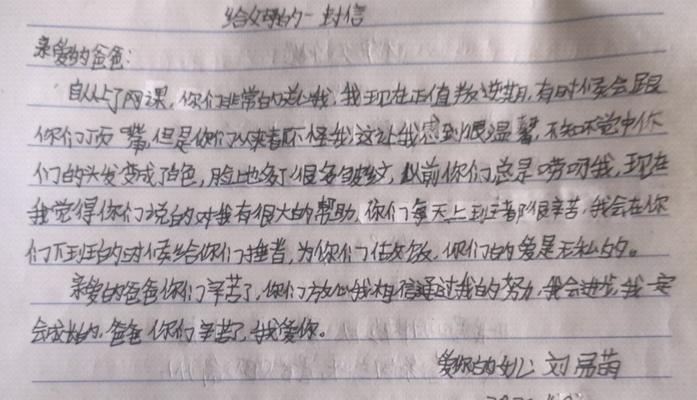 给父母的一封信
亲爱的爸爸:
自从上了网课,你们非常的关心我,我现在正值叛逆期,有时候会跟
你们顶嘴,但是你们从来都不怪我,这让我感到很温馨,不知不觉中你
们的头发变成了白色,脸上也多了很多皱纹,以前你们总是唠叨我,现在
我觉得你们说的对我有很大的帮助,你们每天上班都很辛苦,我会在你
们下班的时候给你们捶背,为你们做饭,你们的爱是无私的。
亲爱的爸爸你们辛苦了,你们放心我相信通过我的努力,我会进步,我一定
会成长的,爸爸你们辛苦了,我爱你。
爱你的女儿 刘 萌